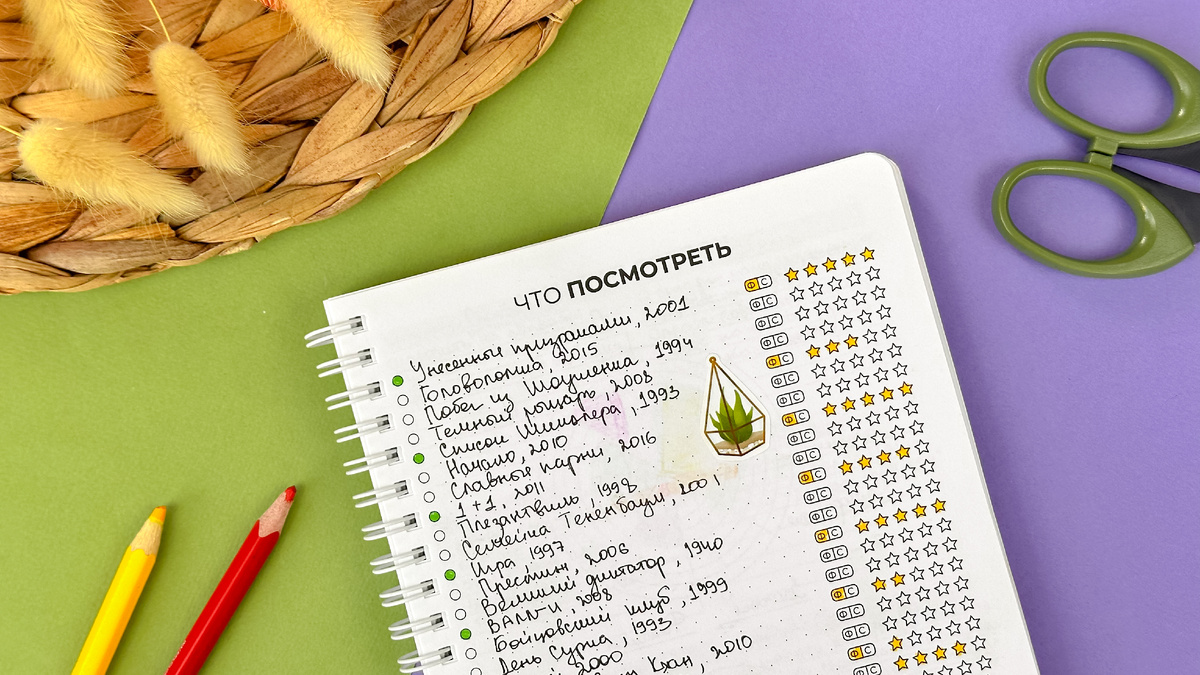 ЧТО ПОСМОТРЕТЬ
Унесенные призраками, 2001
Головоломка, 2015
Побег из Шоушенка, 1994
Темный рыцарь, 2008
Список Шиндлера, 1993
Начало, 2010
Славные парни, 2016
1+1, 2011
Плезантвиль, 1998
Семейка Тененбаум, 2001
Игра, 1997
Престиж, 2006
Великий диктатор, 1940
ВАЛЛ-И, 2008
Бойцовский клуб, 1999
День Сурка, 1993
2000
2010
Ф С
Ф С
Ф С
Ф С
Ф С
Ф С
Ф С
Ф С
Ф С
Ф С
Ф С
Ф С
Ф С
Ф С
Ф С
Ф С
Ф С
Ф С
Ф С
Ф С
Ф С